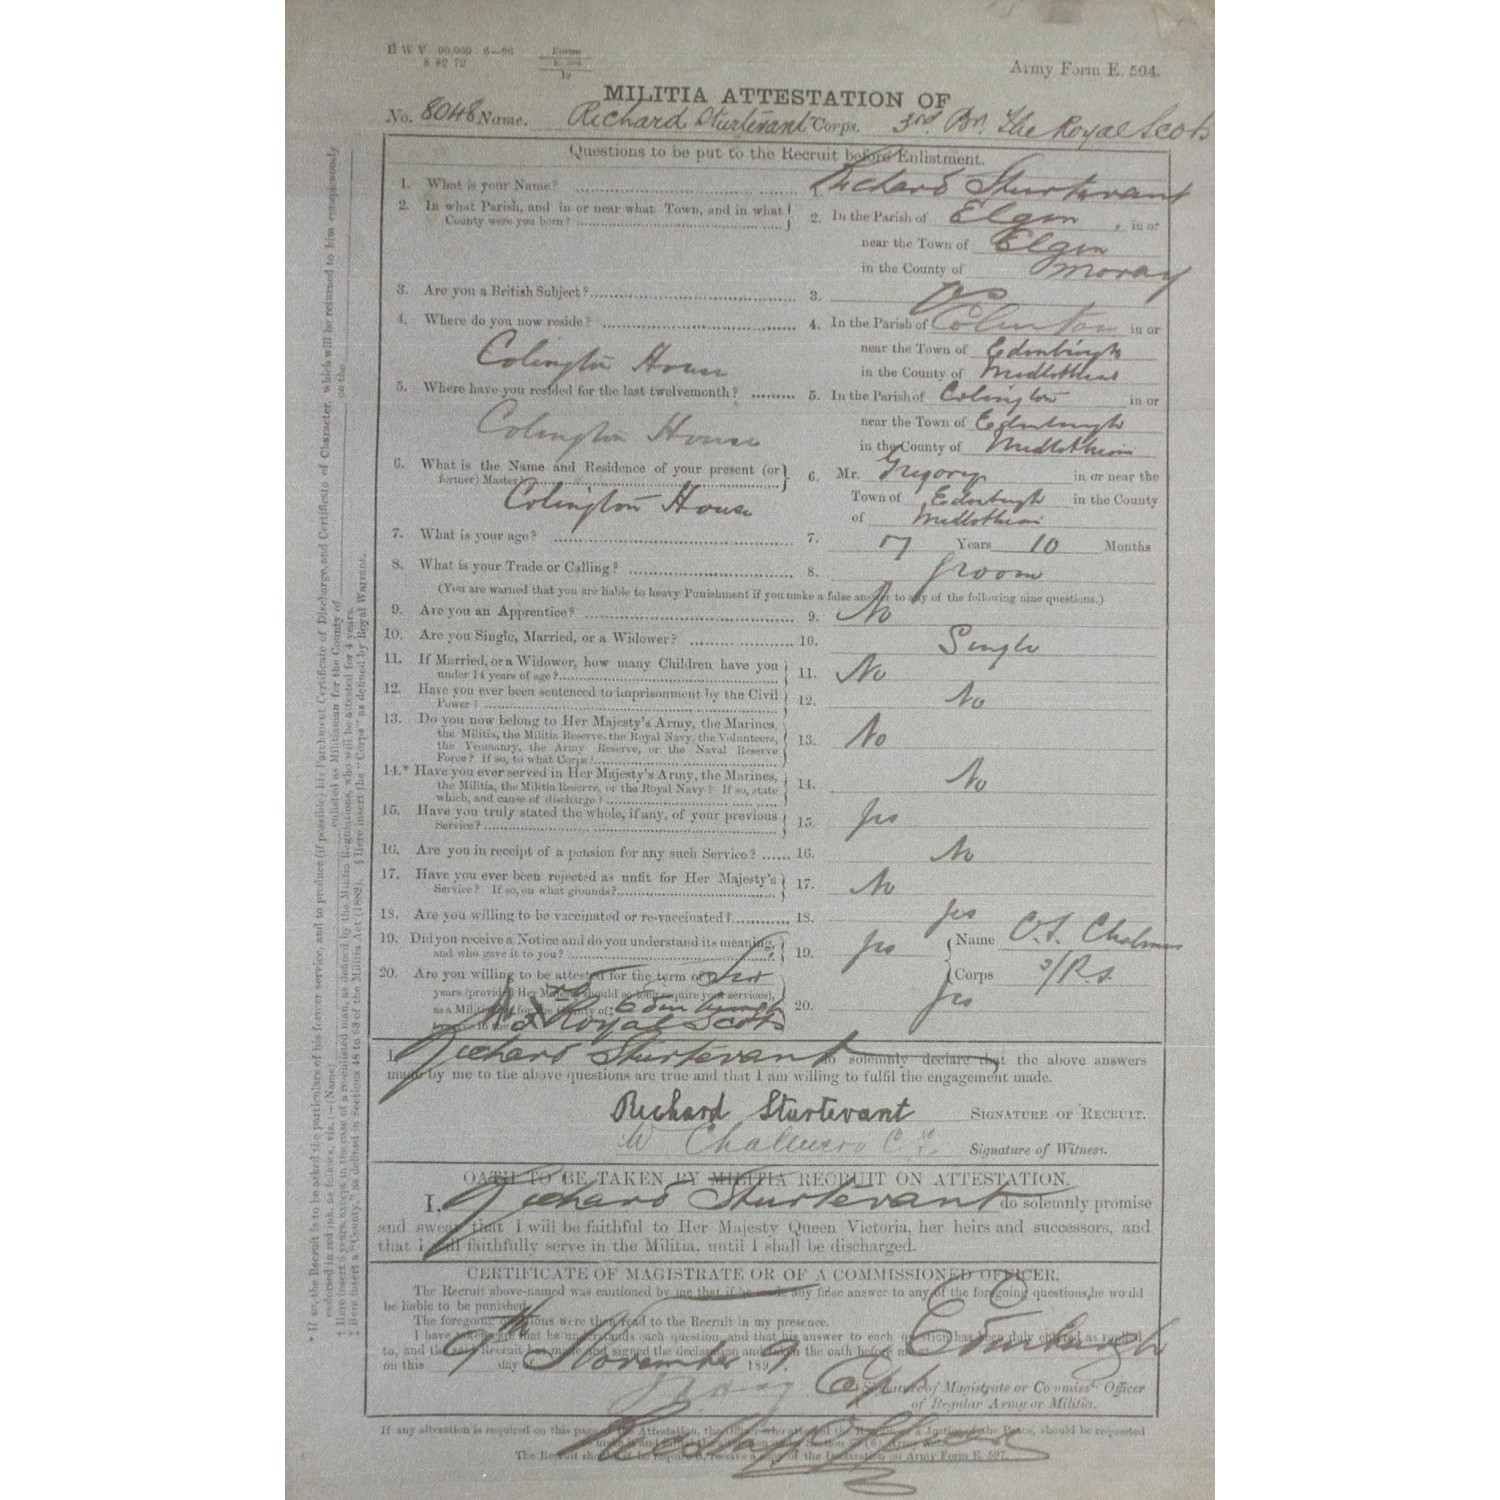 H W V 90,000 6—96
8 82 72
Forms
E. 504
12
Army Form E. 504.
MILITIA ATTESTATION OF
No. 8048 Name. Richard Sturtevant Corps. 3rd Bn. The Royal Scots
Questions to be put to the Recruit before Enlistment.
1. What is your Name? 1. Richard Sturtevant
2. In what Parish, and in or near what Town, and in what County were you born? 2. In the Parish of Elgin, in or
near the Town of Elgin
in the County of Moray
3. Are you a British Subject? 3.
4. Where do you now reside? 4. In the Parish of Colinton in or
near the Town of Edinburgh
Colington House in the County of Midlothian
5. Where have you resided for the last twelvemonth? 5. In the Parish of Colington in or
near the Town of Edinburgh
Colington House in the County of Midlothian
6. What is the Name and Residence of your present (or former) Master? 6. Mr. Gregory in or near the
Colington House Town of Edinburgh in the County
of Midlothian
7. What is your age? 7. 17 Years 10 Months
8. What is your Trade or Calling? 8. Groom
(You are warned that you are liable to heavy Punishment if you make a false answer to any of the following nine questions.)
9. Are you an Apprentice? 9. No
10. Are you Single, Married, or a Widower? 10. Single
11. If Married, or a Widower, how many Children have you under 14 years of age? 11. No
12. Have you ever been sentenced to imprisonment by the Civil Power? 12. No
13. Do you now belong to Her Majesty's Army, the Marines,
the Militia, the Militia Reserve, the Royal Navy, the Volunteers,
the Yeomanry, the Army Reserve, or the Naval Reserve
Force? If so, to what Corps? 13. No
14.* Have you ever served in Her Majesty's Army, the Marines,
the Militia, the Militia Reserve, or the Royal Navy? If so, state
which, and cause of discharge? 14. No
15. Have you truly stated the whole, if any, of your previous Service? 15. Yes
16. Are you in receipt of a pension for any such Service? 16. No
17. Have you ever been rejected as unfit for Her Majesty's
Service? If so, on what grounds? 17. No
18. Are you willing to be vaccinated or re-vaccinated? 18. Yes
19. Did you receive a Notice and do you understand its meaning,
and who gave it to you? 19. Yes Name Chalmers
Corps 3/R.S.
20. Are you willing to be attested for the term of Six
years (provided Her Majesty should so long require your services),
as a Militiaman for the County of Edinburgh
to serve in the Royal Scots 20. Yes
I, Richard Sturtevant do solemnly declare that the above answers
made by me to the above questions are true and that I am willing to fulfil the engagement made.
Richard Sturtevant SIGNATURE OF RECRUIT.
W Chalmers Signature of Witness.
OATH TO BE TAKEN BY MILITIA RECRUIT ON ATTESTATION.
I, Richard Sturtevant do solemnly promise
and swear that I will be faithful to Her Majesty Queen Victoria, her heirs and successors, and
that I will faithfully serve in the Militia, until I shall be discharged.
CERTIFICATE OF MAGISTRATE OR OF A COMMISSIONED OFFICER.
The Recruit above-named was cautioned by me that if he made any false answer to any of the foregoing questions, he would
be liable to be punished.
The foregoing questions were then read to the Recruit in my presence.
I have taken care that he understands each question, and that his answer to each question has been duly entered as replied
to, and the said Recruit has made and signed the declaration and taken the oath before me at Edinburgh
on this 9th day of November 1897.
Capt Signature of Magistrate or Commissd. Officer
of Regular Army or Militia.
If any alteration is required on this page of the Attestation, the Officer who attested the Recruit, or a Justice of the Peace, should be requested
The Recruit should, if he require it, receive a copy of the Declaration on Army Form E. 597.
* If so, the Recruit is to be asked the particulars of his former service, and to produce (if possible) his Parchment Certificate of Discharge, and Certificate of Character, which will be returned to him conspicuously
endorsed in red ink, as follows, viz.:—(Name) enlisted as Militiaman for the County of on the
† Here insert 6 years, except in the case of a re-enlisted man, as defined by the Militia Regulations, who will be attested for 4 years.
‡ Here insert a "County," as defined in Sections 48 to 53 of the Militia Act (1882). § Here insert the "Corps" as defined by Royal Warrant.